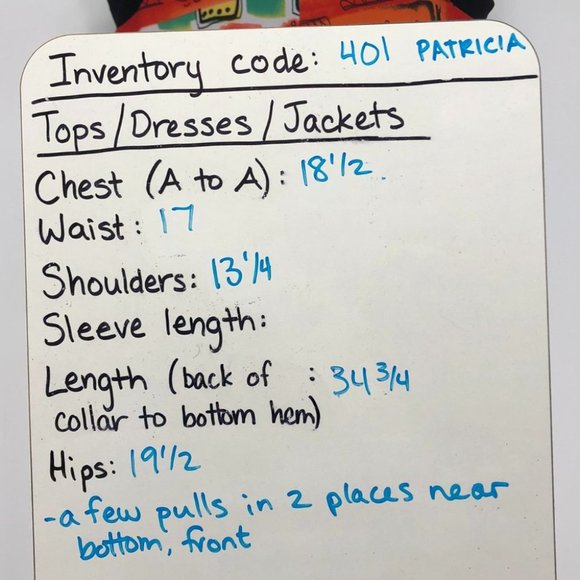 Inventory code: 401 PATRICIA
Tops/Dresses/Jackets
Chest (A to A): 18 1/2.
Waist: 17
Shoulders: 13 1/4
Sleeve length:
Length (back of : 34 3/4
collar to bottom hem)
Hips: 19 1/2
-a few pulls in 2 places near
bottom, front